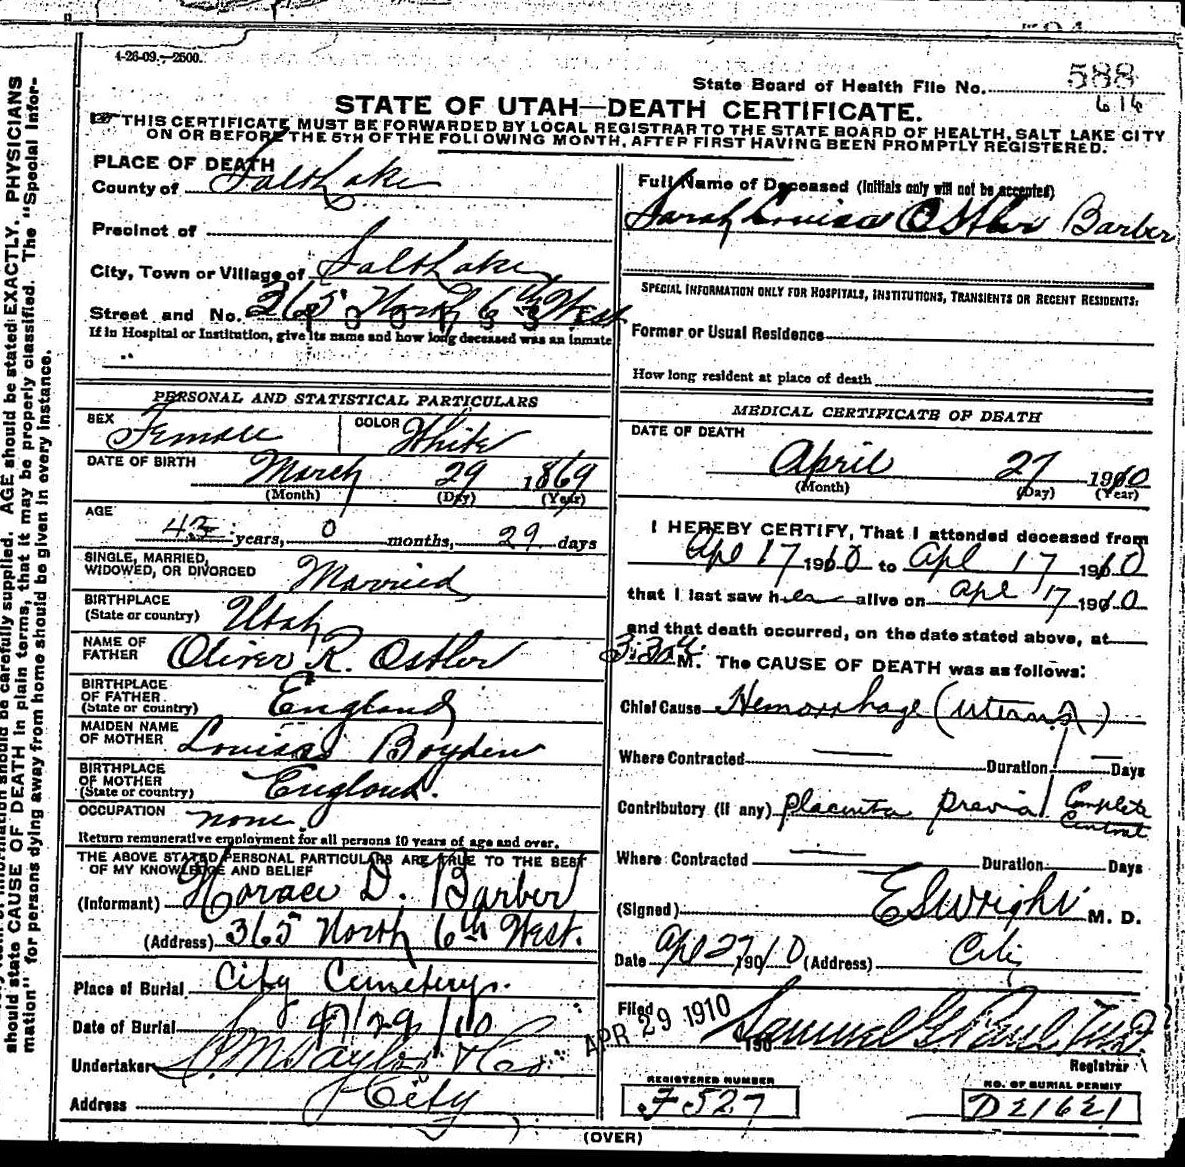 4-26-09.—2500.
State Board of Health File No. 588
616
STATE OF UTAH—DEATH CERTIFICATE.
THIS CERTIFICATE MUST BE FORWARDED BY LOCAL REGISTRAR TO THE STATE BOARD OF HEALTH, SALT LAKE CITY
ON OR BEFORE THE 5TH OF THE FOLLOWING MONTH, AFTER FIRST HAVING BEEN PROMPTLY REGISTERED.
PLACE OF DEATH
County of Salt Lake
Precinct of
City, Town or Village of Salt Lake
Street and No. 365 North 6th West
If in Hospital or Institution, give its name and how long deceased was an inmate
PERSONAL AND STATISTICAL PARTICULARS
SEX Female COLOR White
DATE OF BIRTH March 29 1869
(Month) (Day) (Year)
AGE
years, 0 months, 29 days
SINGLE, MARRIED,
WIDOWED, OR DIVORCED Married
BIRTHPLACE
(State or country) Utah
NAME OF
FATHER Oliver R. Ostler
BIRTHPLACE
OF FATHER
(State or country) England
MAIDEN NAME
OF MOTHER Louisa Boyden
BIRTHPLACE
OF MOTHER
(State or country) England.
OCCUPATION none.
Return remunerative employment for all persons 10 years of age and over.
THE ABOVE STATED PERSONAL PARTICULARS ARE TRUE TO THE BEST
OF MY KNOWLEDGE AND BELIEF
(Informant) Horace D. Barber
(Address) 365 North 6th West.
Place of Burial City Cemetery.
Date of Burial 4/29/10
Undertaker S. M. Taylor & Co.
Address City
Full Name of Deceased (Initials only will not be accepted)
Sarah Louisa Ostler Barber
SPECIAL INFORMATION ONLY FOR HOSPITALS, INSTITUTIONS, TRANSIENTS OR RECENT RESIDENTS:
Former or Usual Residence
How long resident at place of death
MEDICAL CERTIFICATE OF DEATH
DATE OF DEATH
April 27 1910
(Month) (Day) (Year)
I HEREBY CERTIFY, That I attended deceased from
Apl 17 1910 to Apl 17 1910
that I last saw her alive on Apl 17 1910
and that death occurred, on the date stated above, at
M. The CAUSE OF DEATH was as follows:
Chief Cause Hemorrhage (uterus)
Where Contracted — Duration — Days
Contributory (if any) placenta previa Complete
Central
Where Contracted — Duration Days
(Signed) E S Wright M. D.
Date Apl 27 1910 (Address) City
Filed APR 29 1910 190 Samuel G. Paul M.D.
Registrar
REGISTERED NUMBER
F 527
NO. OF BURIAL PERMIT
D 21621
(OVER)
should be carefully supplied. AGE should be stated EXACTLY. PHYSICIANS
should state CAUSE OF DEATH in plain terms, that it may be properly classified. The "Special Infor-
mation" for persons dying away from home should be given in every instance.